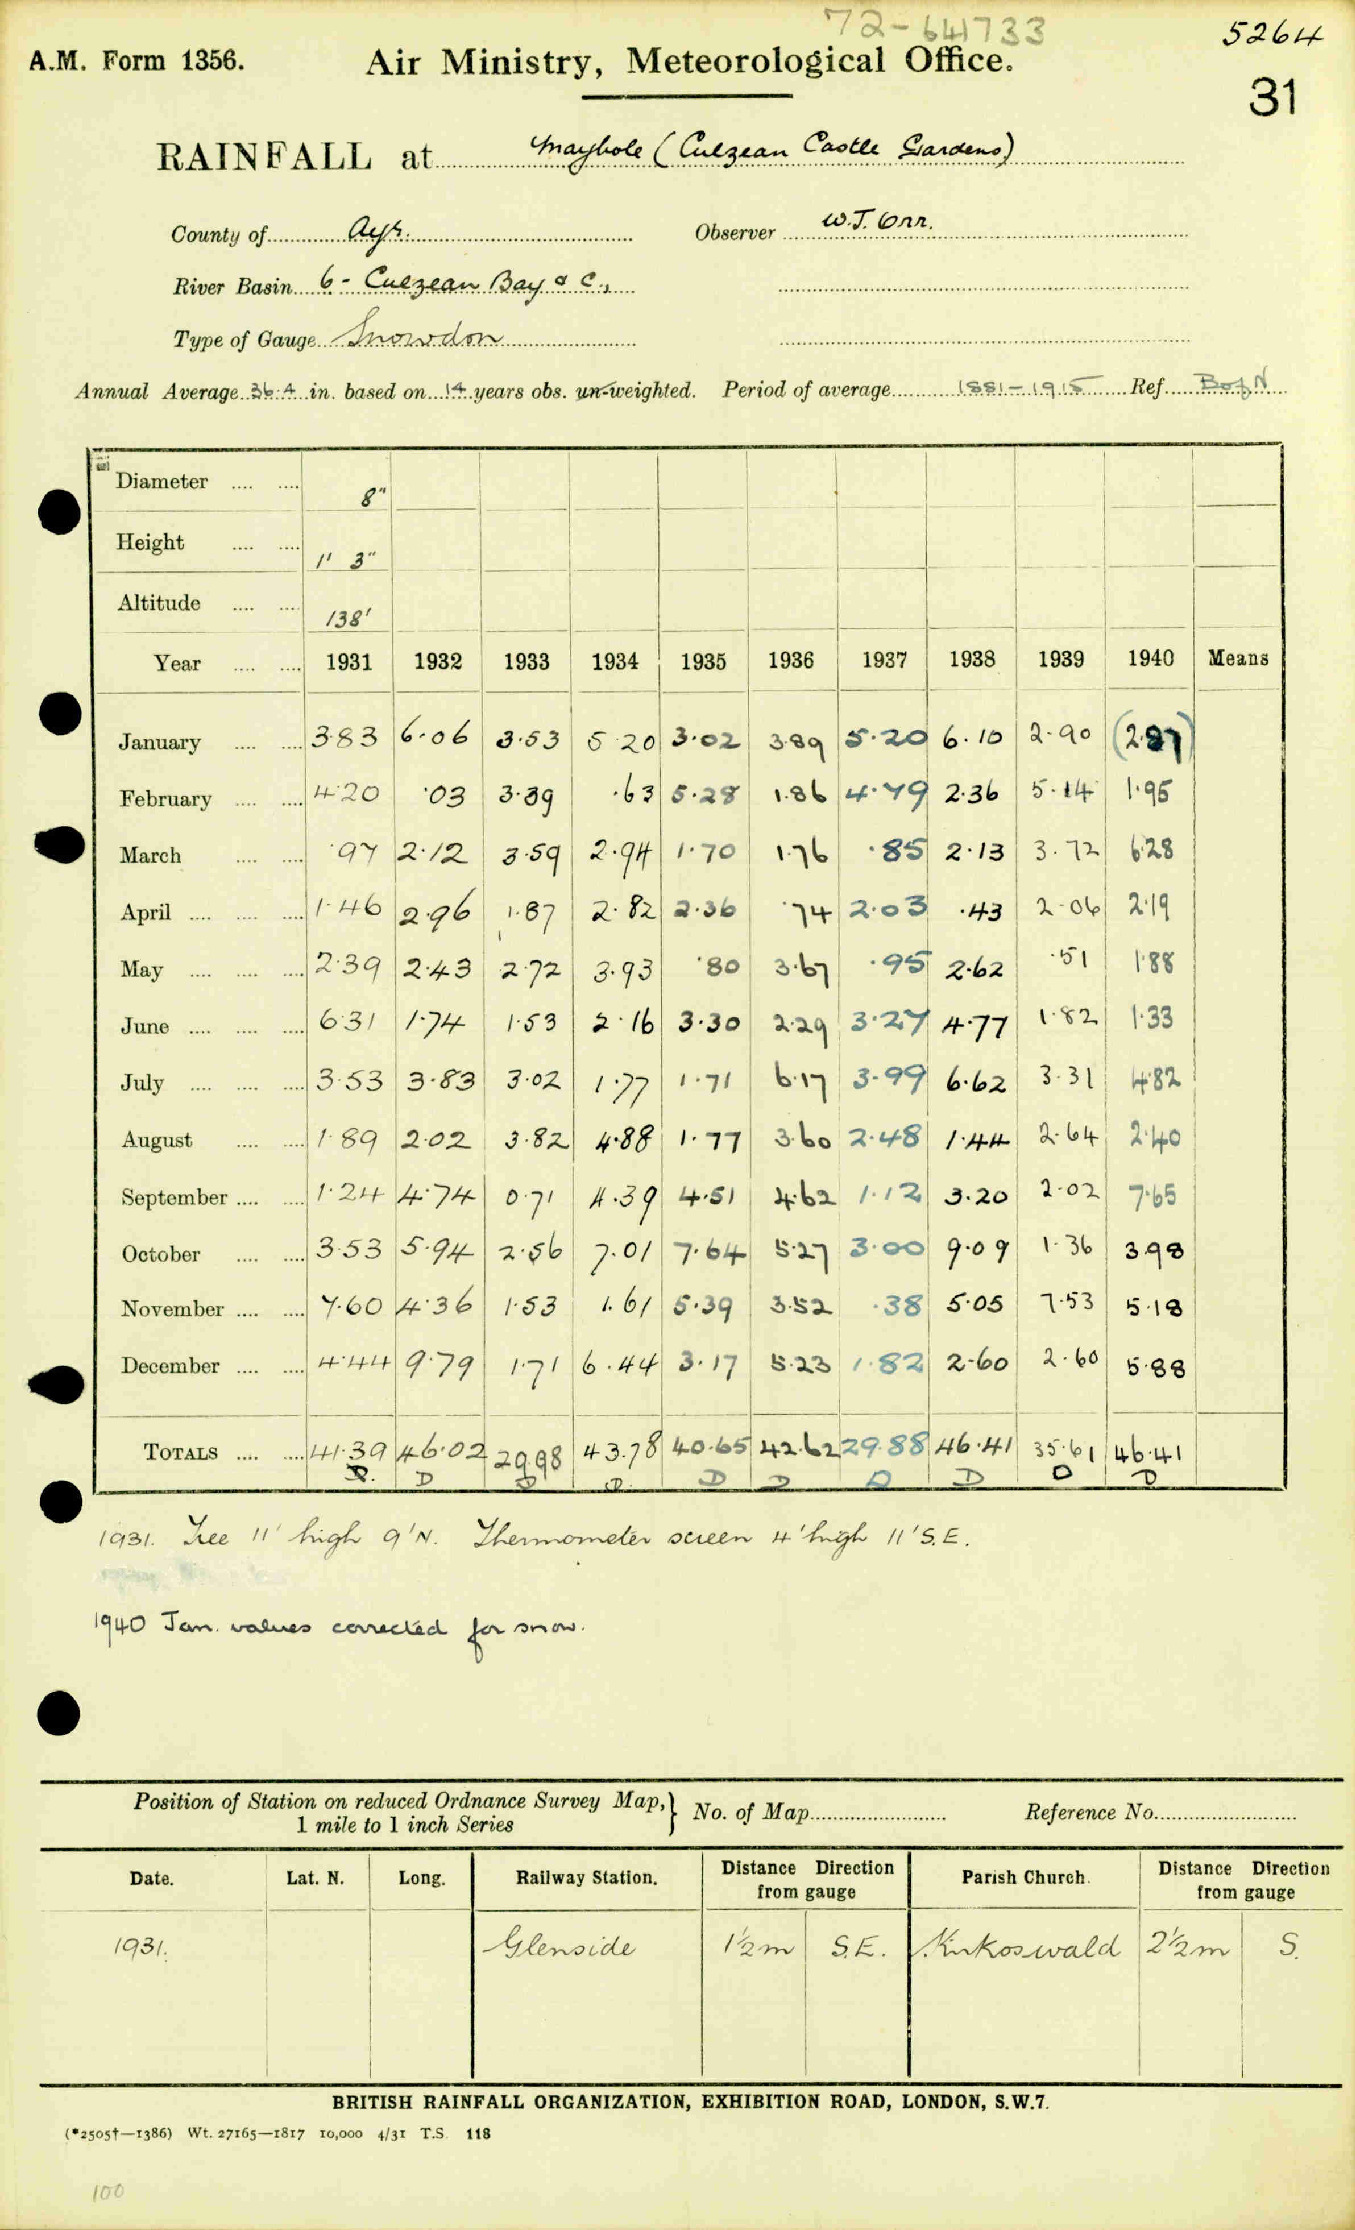 72-641733
5264
A.M. Form 1356.
Air Ministry, Meteorological Office.
31
RAINFALL at Maybole (Culzean Castle Gardens)
County of Ayr. Observer W.J. Orr.
River Basin 6 - Culzean Bay & C.,
Type of Gauge Snowdon
Annual Average 36.4 in. based on 14 years obs. un-weighted. Period of average 1881-1915 Ref. B of N
Diameter .... .... 8"
Height .... .... 1' 3"
Altitude .... .... 138'
Year .... .... 1931 1932 1933 1934 1935 1936 1937 1938 1939 1940 Means
January .... .... 3.83 6.06 3.53 5.20 3.02 3.89 5.20 6.10 2.90 (2.87)
February .... .... 4.20 .03 3.39 .63 5.28 1.86 4.79 2.36 5.14 1.95
March .... .... .97 2.12 3.59 2.94 1.70 1.76 .85 2.13 3.72 6.28
April .... .... .... 1.46 2.96 1.87 2.82 2.36 .74 2.03 .43 2.06 2.19
May .... .... .... 2.39 2.43 2.72 3.93 .80 3.67 .95 2.62 .51 1.88
June .... .... .... 6.31 1.74 1.53 2.16 3.30 2.29 3.27 4.77 1.82 1.33
July .... .... .... 3.53 3.83 3.02 1.77 1.71 6.17 3.99 6.62 3.31 4.82
August .... .... 1.89 2.02 3.82 4.88 1.77 3.60 2.48 1.44 2.64 2.40
September .... .... 1.24 4.74 0.71 4.39 4.51 4.62 1.12 3.20 2.02 7.65
October .... .... 3.53 5.94 2.56 7.01 7.64 5.27 3.00 9.09 1.36 3.98
November .... .... 7.60 4.36 1.53 1.61 5.39 3.52 .38 5.05 7.53 5.18
December .... .... 4.44 9.79 1.71 6.44 3.17 5.23 1.82 2.60 2.60 5.88
TOTALS .... .... 41.39 46.02 29.98 43.78 40.65 42.62 29.88 46.41 35.61 46.41
D. D D D. D D D D D D
1931. Tree 11' high 9' N. Thermometer screen 4' high 11' S.E.
1940 Jan. values corrected for snow.
Position of Station on reduced Ordnance Survey Map, } No. of Map Reference No.
1 mile to 1 inch Series
Date. Lat. N. Long. Railway Station. Distance Direction from gauge Parish Church. Distance Direction from gauge
1931. Glenside 1½m S.E. Kirkoswald 2½m S.
BRITISH RAINFALL ORGANIZATION, EXHIBITION ROAD, LONDON, S.W.7.
(*2505†—1386) Wt. 27165—1817 10,000 4/31 T.S. 118
100